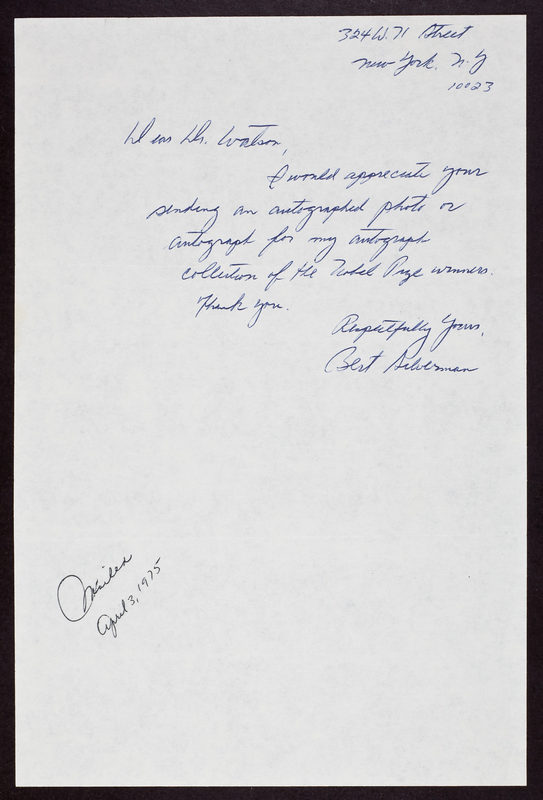 324 W. 71 Street
New York. N.Y
10023
Dear Dr. Watson,
I would appreciate your
sending an autographed photo or
autograph for my autograph
collection of the Nobel Prize winners.
Thank you.
Respectfully Yours,
Bert Silverman
Mailed
April 3, 1975